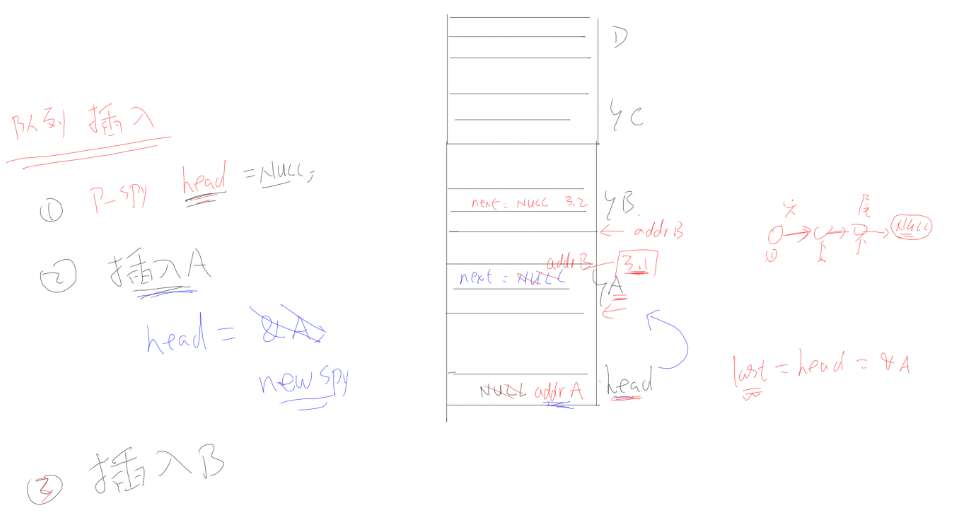 队列 插入
① P_spy head = NULL;
② 插入A
head = &A
new spy
③ 插入B
D
C
next = NULL 3.2
B
addrB
addrB 3.1
next = NULL
A
NULL addr A
head
头 尾
NULL
①
last = head = &A